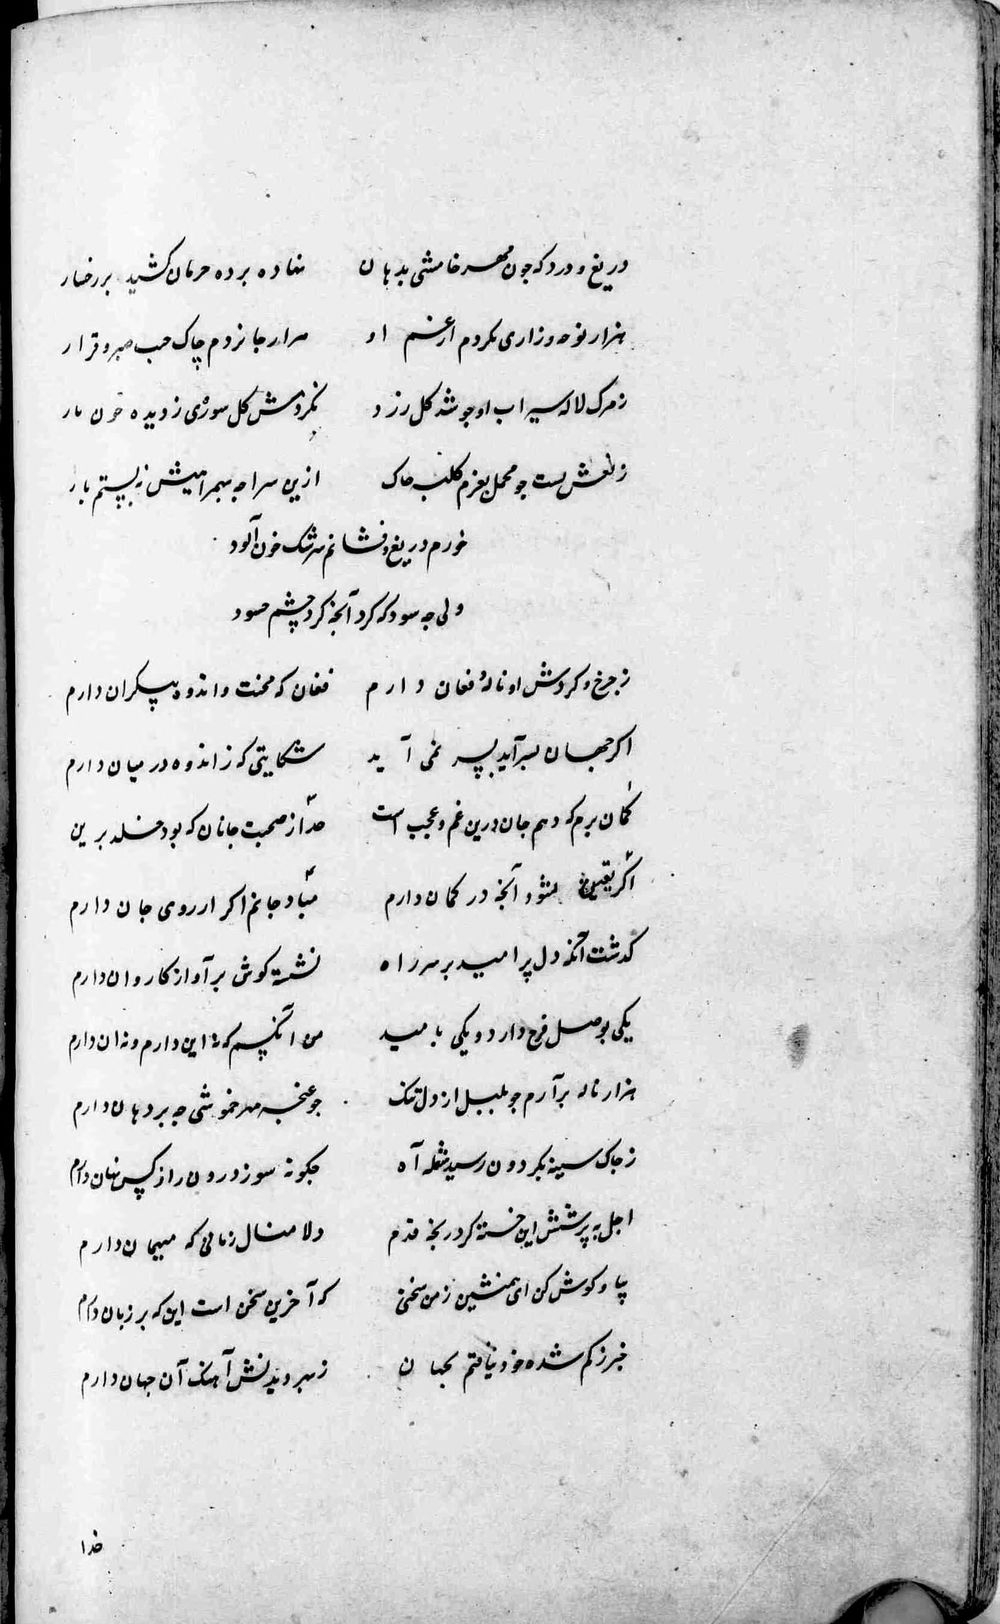 دریغ و درد که چون مهر خامشی بدهان نهاده پرده حرمان کشید بر رخسار
هزار نوحه و زاری نکردم از غم او هزار جا نزدم چاک جیب صبر و قرار
ز مرک لاله سیراب او چو شد کل زرد نکردمش کل سوری ز دیده خون بار
ز نعش بست چو محمل بعزم کلبه خاک ازین سراچه بهمراهیش نه بستم بار
خورم دریغ و فشانم سرشک خون آلود
ولی چه سود که کرد آنچه کرد چشم حسود
ز چرخ و کردش او ناله و فغان دارم فغان که محنت و اندوه بیکران دارم
اکر جهان بسر آید بسر نمی آید شکایتی که ز اندوه در میان دارم
کمان برم که دهم جان درین غم و عجب است جدا از صحبت جانان که بود خلد برین
اکر یقین نشود آنچه در کمان دارم مباد جانم اکر ارزوی جان دارم
کذشت آنکه دل پر امید بر سر راه نشسته کوش بر آواز کاروان دارم
یکی بوصل فرح دارد و یکی بامید من آن کسم که نه این دارم و نه آن دارم
هزار ناله برآرم چو بلبل از دل تنک چو غنچه مهر خموشی چه بر دهان دارم
ز چاک سینه بکردون رسید شعله آه چکونه سوز درون را ز کس نهان دارم
اجل به پرسش این خسته کرد رنجه قدم دلا منال زمانی که میهمان دارم
بیا و کوش کن ای همنشین ز من سخنی که آخرین سخن است این که بر زبان دارم
خبر ز کم شده خود نیافتم بجهان ز بهر دیدنش آهنک آن جهان دارم
خدا